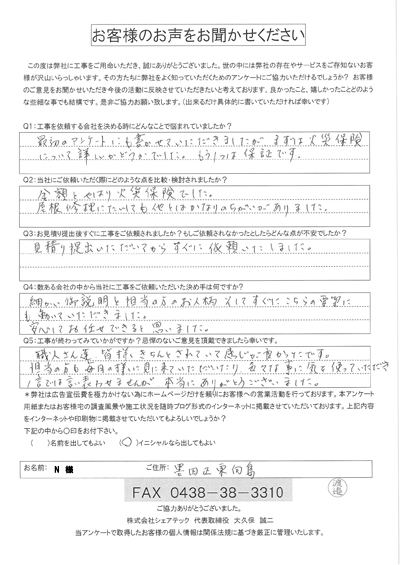 お客様のお声をお聞かせください
この度は弊社に工事をご用命いただき、誠にありがとうございました。世の中には弊社の存在やサービスをご存知ないお客
様が沢山いらっしゃいます。その方たちに弊社をよく知っていただくためのアンケートにご協力いただけるでしょうか？お客様
のご意見をお聞かせいただき今後の活動に反映させていただきたいと考えております。良かったこと、嬉しかったことどのよう
な些細な事でも結構です。是非ご協力お願い致します。（出来るだけ具体的に書いていただければ幸いです）
Q1：工事を依頼する会社を決める時にどんなことで悩まれていましたか？
最初のアンケートにも書かせていただきましたが まずは火災保険
について詳しいかどうかでした。もう1つは保証です。
Q2：当社にご依頼いただく際にどのような点を比較・検討されましたか？
金額とやはり火災保険でした。
屋根修理にたいしても他とはかなりのちがいがありました。
Q3：お見積り提出後すぐに工事をご依頼されましたか？もしご依頼されなかったとしたらどんな点が不安でしたか？
見積り提出いただいてからすぐに依頼いたしました。
Q4：数ある会社の中から当社に工事をご依頼いただいた決め手は何ですか？
細かい御説明と担当の方のお人柄 そしてすぐにこちらの要望に
も動いていただきました。
安心してお任せできると思いました。
Q5：工事が終わってみていかがですか？忌憚のないご意見を頂戴できましたら幸いです。
職人さん達 皆様 きちんとされていて感じが良かったです。
担当の方も毎日の様に見に来ていただいたり、色々な事に気を使っていただき
1言では言い表わせませんが 本当にありがとうございました。
＊弊社は広告宣伝費を極力かけない為にホームページだけを頼りにお客様への営業活動を行っております。本アンケート
用紙またはお客様宅の調査風景や施工状況を随時ブログ形式のインターネットに掲載させていただいております。上記内容
をインターネットや印刷物に掲載させていただいてもよろしいでしょうか？
下記の中から〇印をお付下さい。
（　）名前を出してもよい　（○）イニシャルなら出してもよい
お名前：　N 様　ご住所：　墨田区東向島
FAX 0438-38-3310
渡邉
ご協力ありがとうございました。
株式会社シェアテック　代表取締役　大久保　誠二
当アンケートで取得したお客様の個人情報は関係法規に基づき厳正に管理いたします。